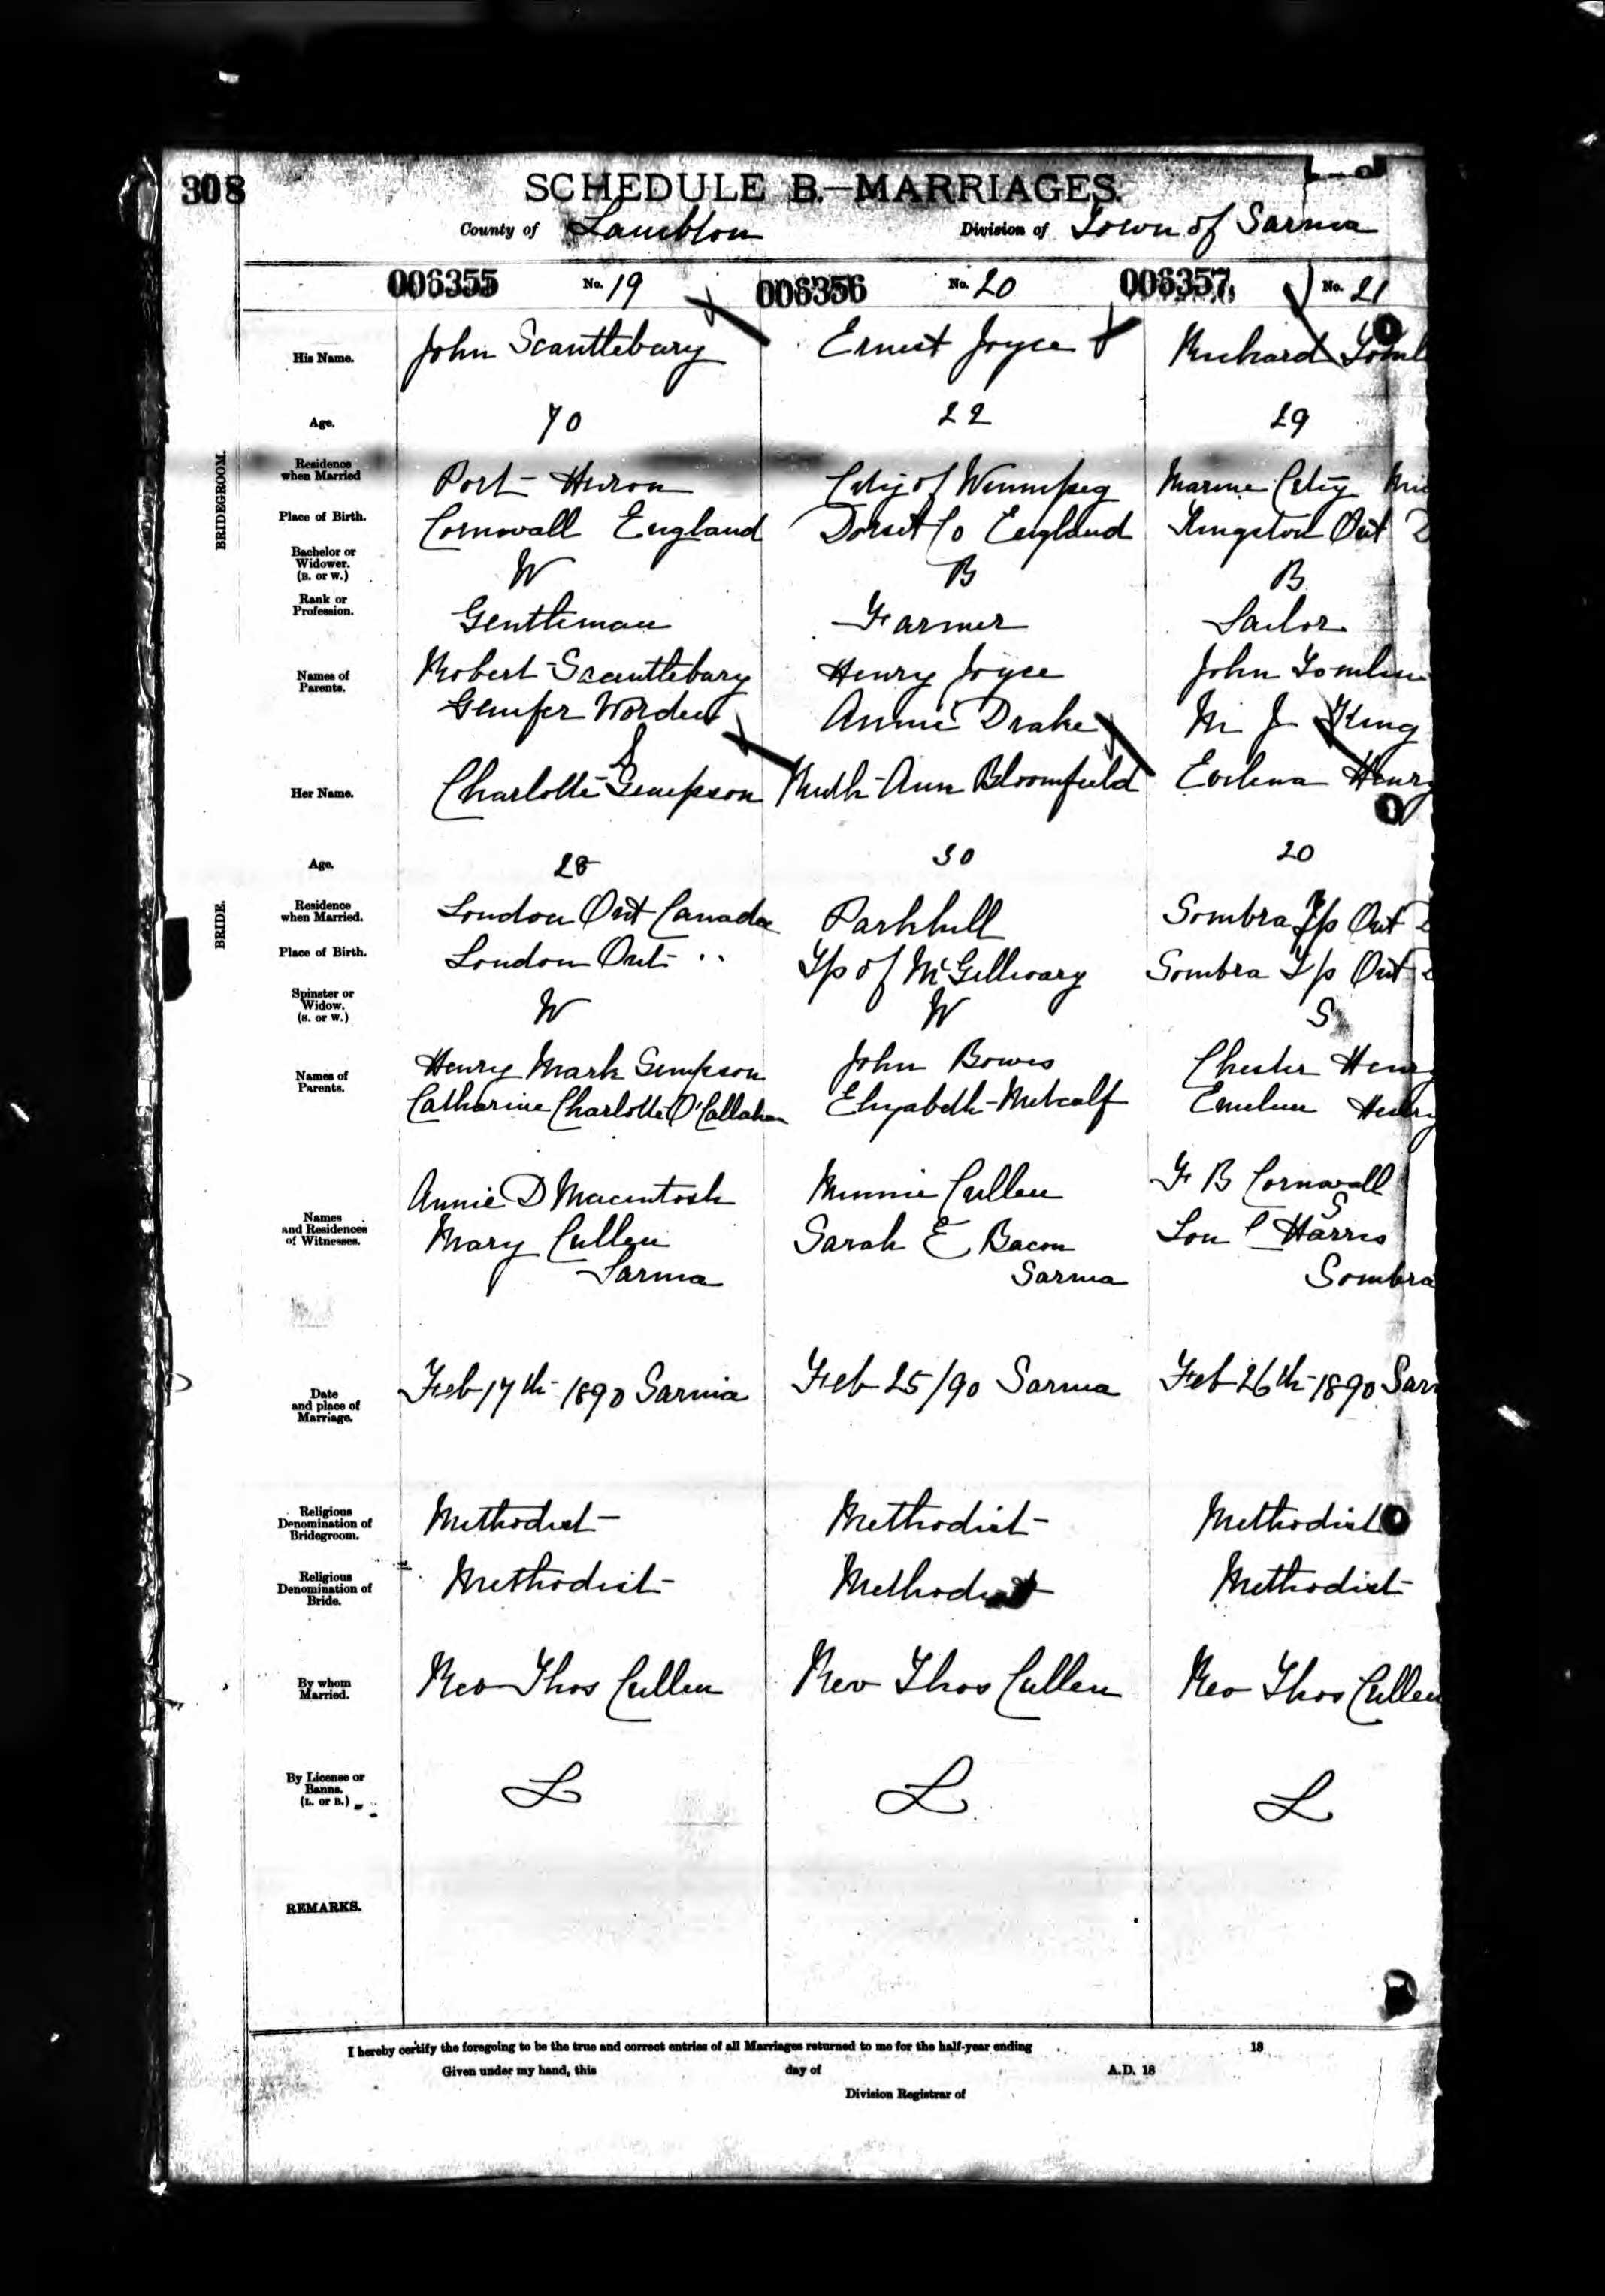 308
SCHEDULE B.—MARRIAGES.
County of Lambton Division of Town of Sarnia
006355 No. 19 006356 No. 20 006357 No. 21
His Name. John Scantlebury Ernest Joyce Richard Toml
Age. 70 22 29
BRIDEGROOM.
Residence when Married Port Huron City of Winnipeg Marine City Mic
Place of Birth. Cornwall England Dorset Co England Kingston Ont
Bachelor or Widower. (B. or W.) W B B
Rank or Profession. Gentleman Farmer Sailor
Names of Parents. Robert Scantlebury Henry Joyce John Tomlin
Genifer Worden Annie Drake M J King
Her Name. Charlotte Simpson Ruth Ann Bloomfield Evelena Henry
Age. 28 30 20
BRIDE.
Residence when Married. London Ont Canada Parkhill Sombra T/p Ont
Place of Birth. London Ont " T/p of McGillivary Sombra T/p Ont
Spinster or Widow. (S. or W.) W W S
Names of Parents. Henry Mark Simpson John Bowes Chester Henry
Catharine Charlotte O'Callahan Elizabeth Metcalf Emeline Henry
Names and Residences of Witnesses. Annie D Macintosh Minnie Cullen F B Cornwall
Mary Cullen Sarah E Bacon Lou S Harris
Sarnia Sarnia Sombra
Date and place of Marriage. Feb 17th 1890 Sarnia Feb 25/90 Sarnia Feb 26th 1890 Sar
Religious Denomination of Bridegroom. Methodist Methodist Methodist
Religious Denomination of Bride. Methodist Methodist Methodist
By whom Married. Rev Thos Cullen Rev Thos Cullen Rev Thos Cullen
By License or Banns. (L. or B.) L L L
REMARKS.
I hereby certify the foregoing to be the true and correct entries of all Marriages returned to me for the half-year ending 18
Given under my hand, this day of A.D. 18
Division Registrar of